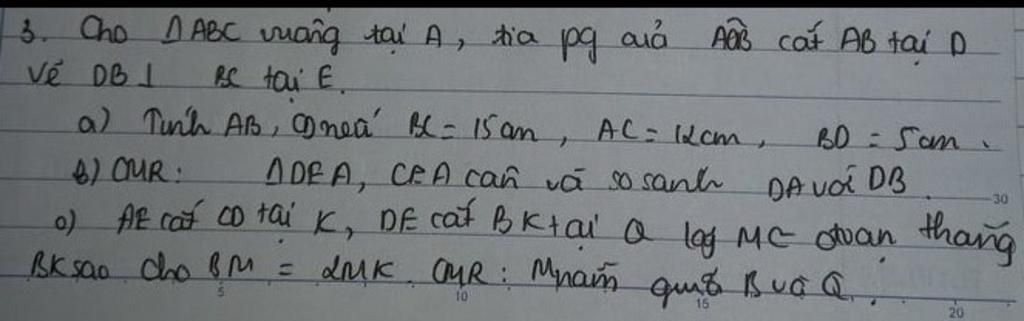 3. Cho ΔABC vuông tại A, tia pg của AĈB cắt AB tại D
Vẽ DB ⊥ BC tại E.
a) Tính AB, CD nếu BC = 15cm, AC = 12cm, BD = 5cm.
b) CMR: ΔDEA, CEA cân và so sánh DA với DB
c) AE cắt CD tại K, DE cắt BK tại Q lấy M∈ đoạn thẳng
BK sao cho BM = 2MK. CMR: M nằm giữa B và Q.